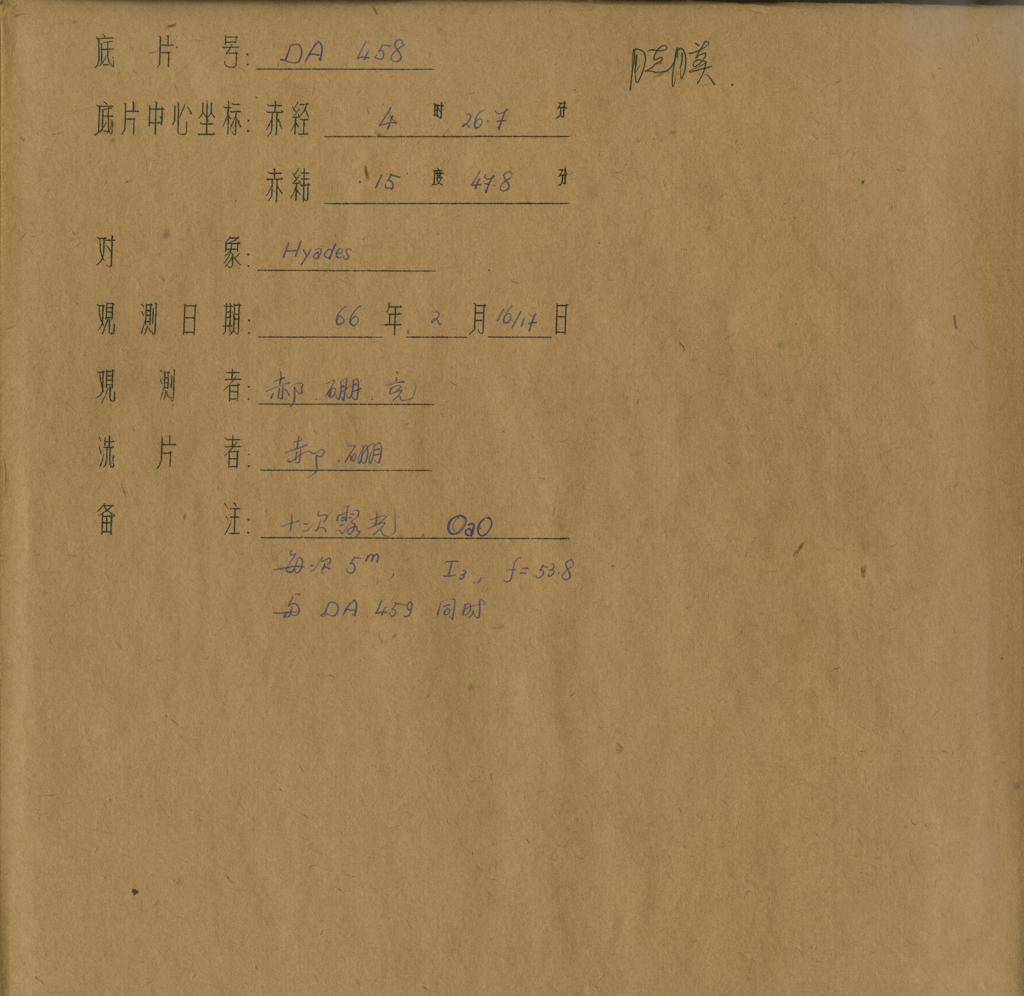 底片号: DA 458
脱膜.
底片中心坐标: 赤経 4 时 26.7 分
赤緯 15 度 47.8 分
对象: Hyades
观測日期: 66 年 2 月 16/17 日
观測者: 郝.硼.亮
洗片者: 郝.硼
备注: 十次露光. OaO
每次 5m, I3, f=53.8
与 DA 459 同时